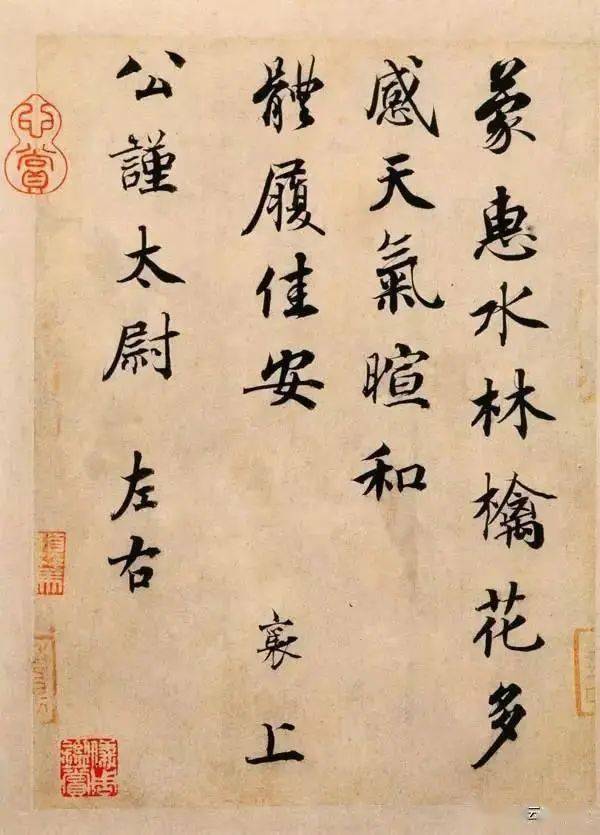 蒙惠水林檎花多
感天氣暄和
體履佳安 襄上
公謹太尉 左右
心賞
云